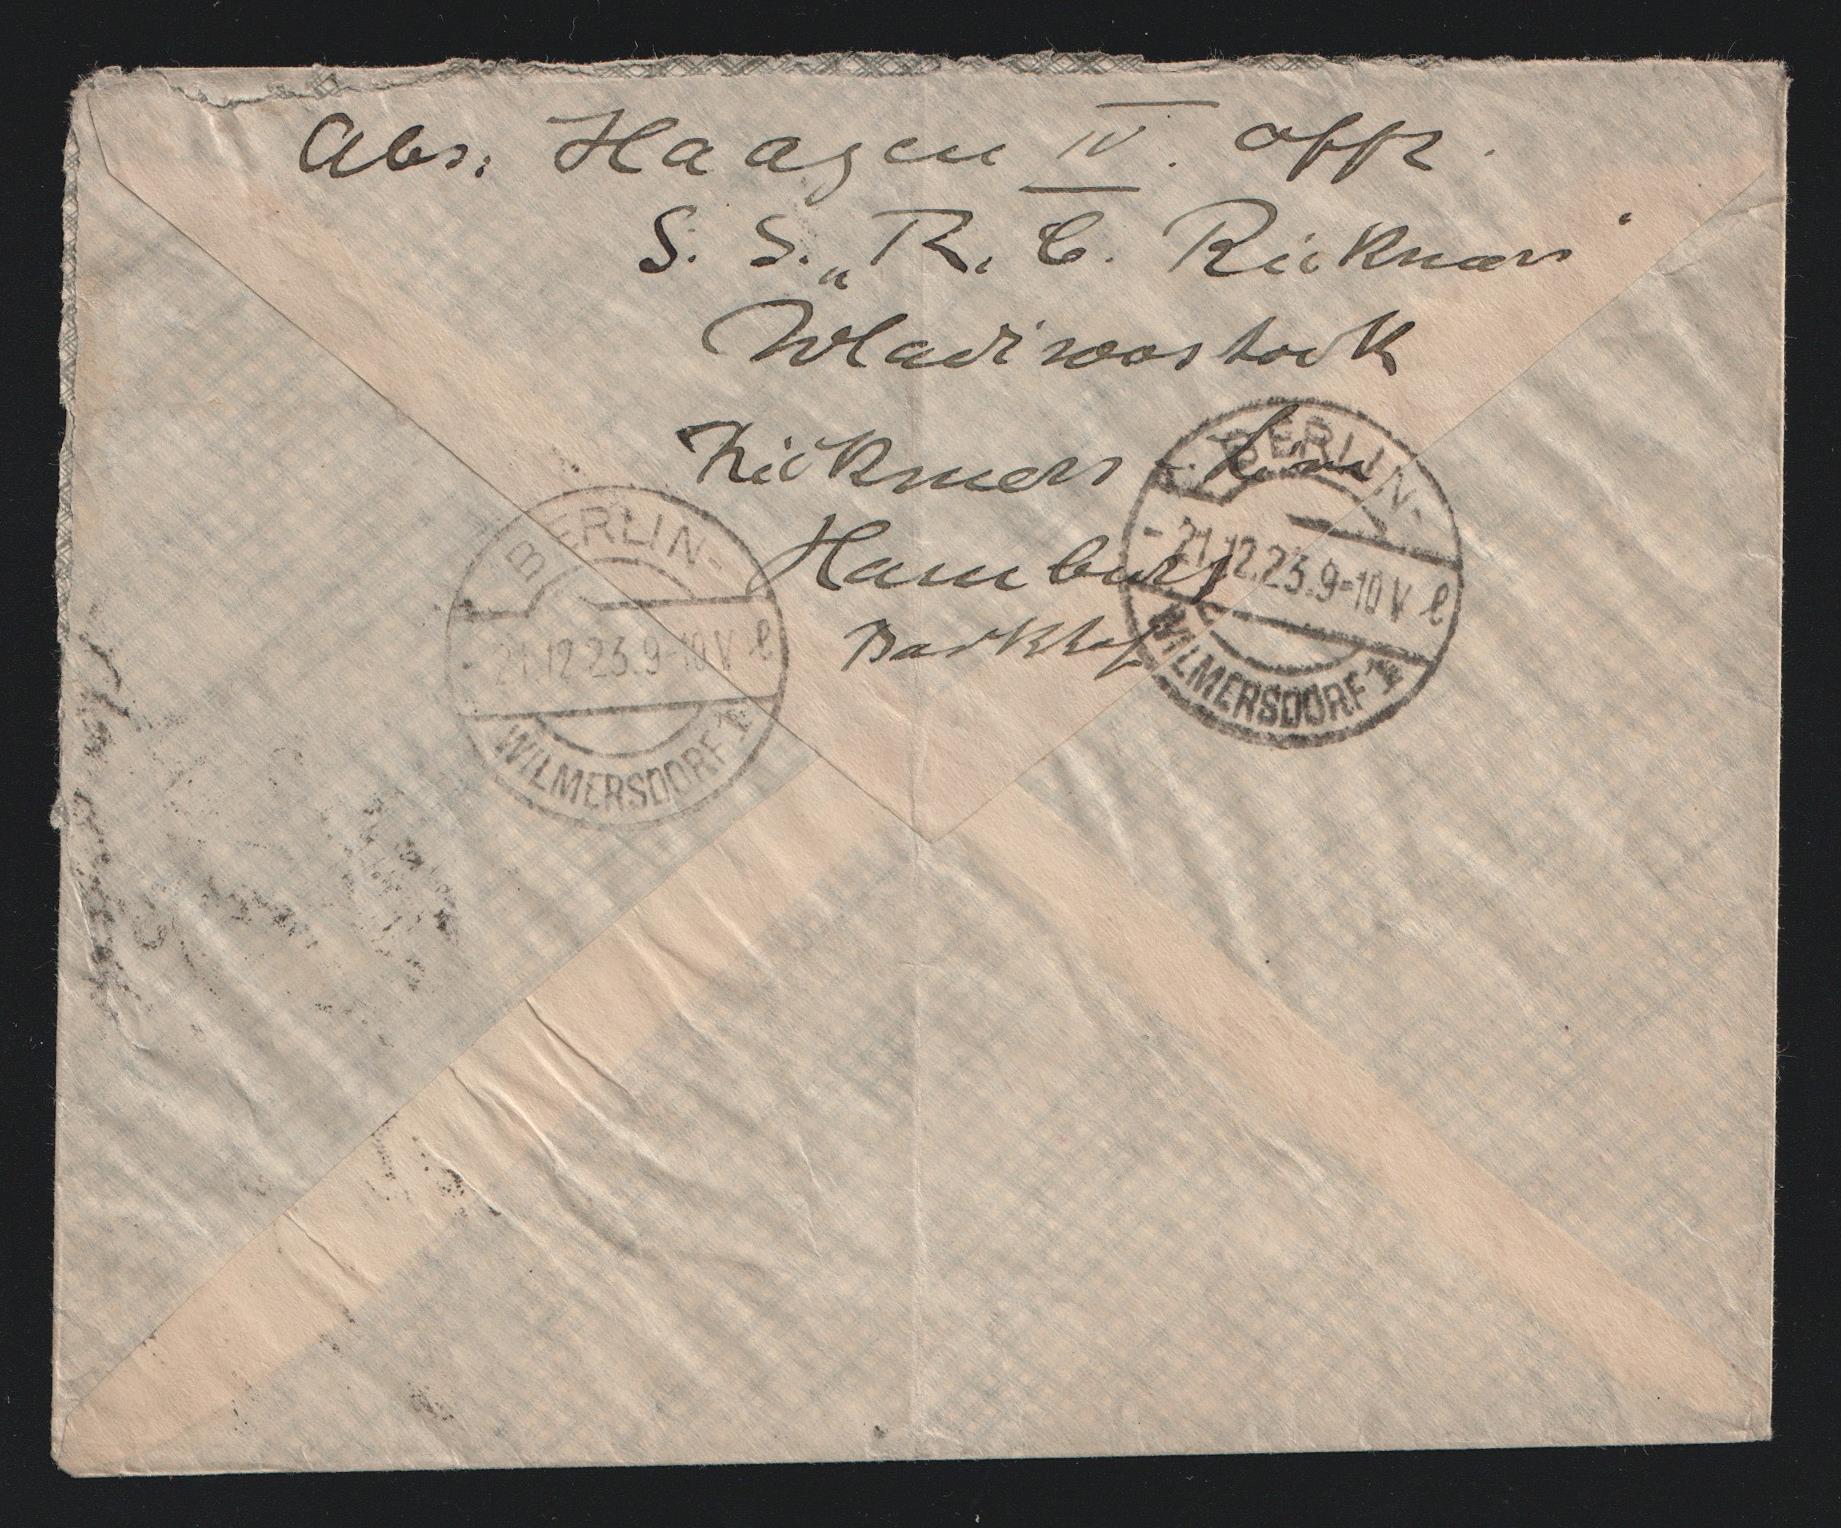 Abs: Haagen IV. Offz.
S. S. „R. C. Rickmers“
Wladiwostock
Rickmers-Linie
Hamburg
Barkhof
BERLIN-
-21.12.23.9-10 V l
WILMERSDORF 1
BERLIN-
-21.12.23.9-10 V l
WILMERSDORF 1